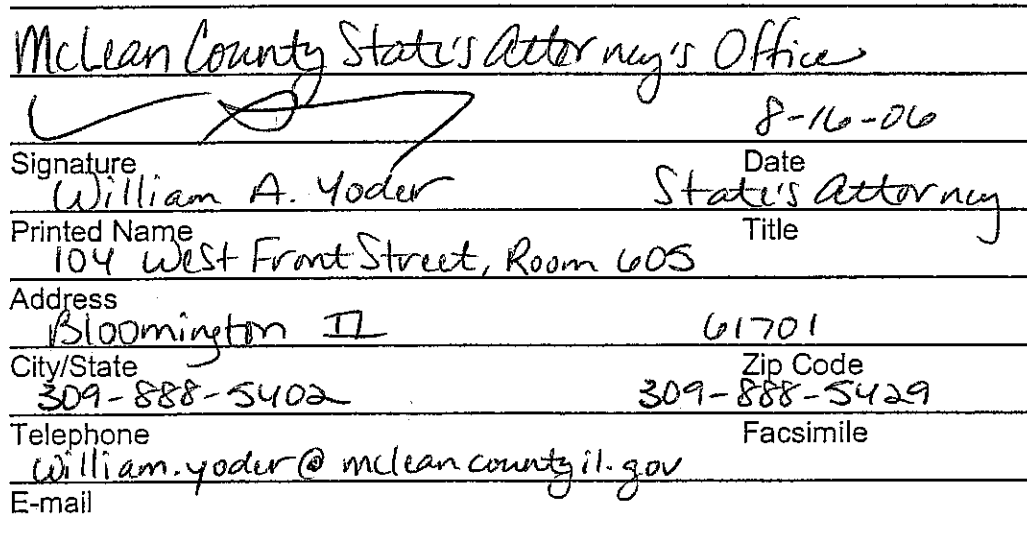 McLean County State's Attorney's Office
8-16-06
Signature Date
William A. Yoder State's Attorney
Printed Name Title
104 West Front Street, Room 605
Address
Bloomington IL 61701
City/State Zip Code
309-888-5402 309-888-5429
Telephone Facsimile
william.yoder@mcleancountyil.gov
E-mail